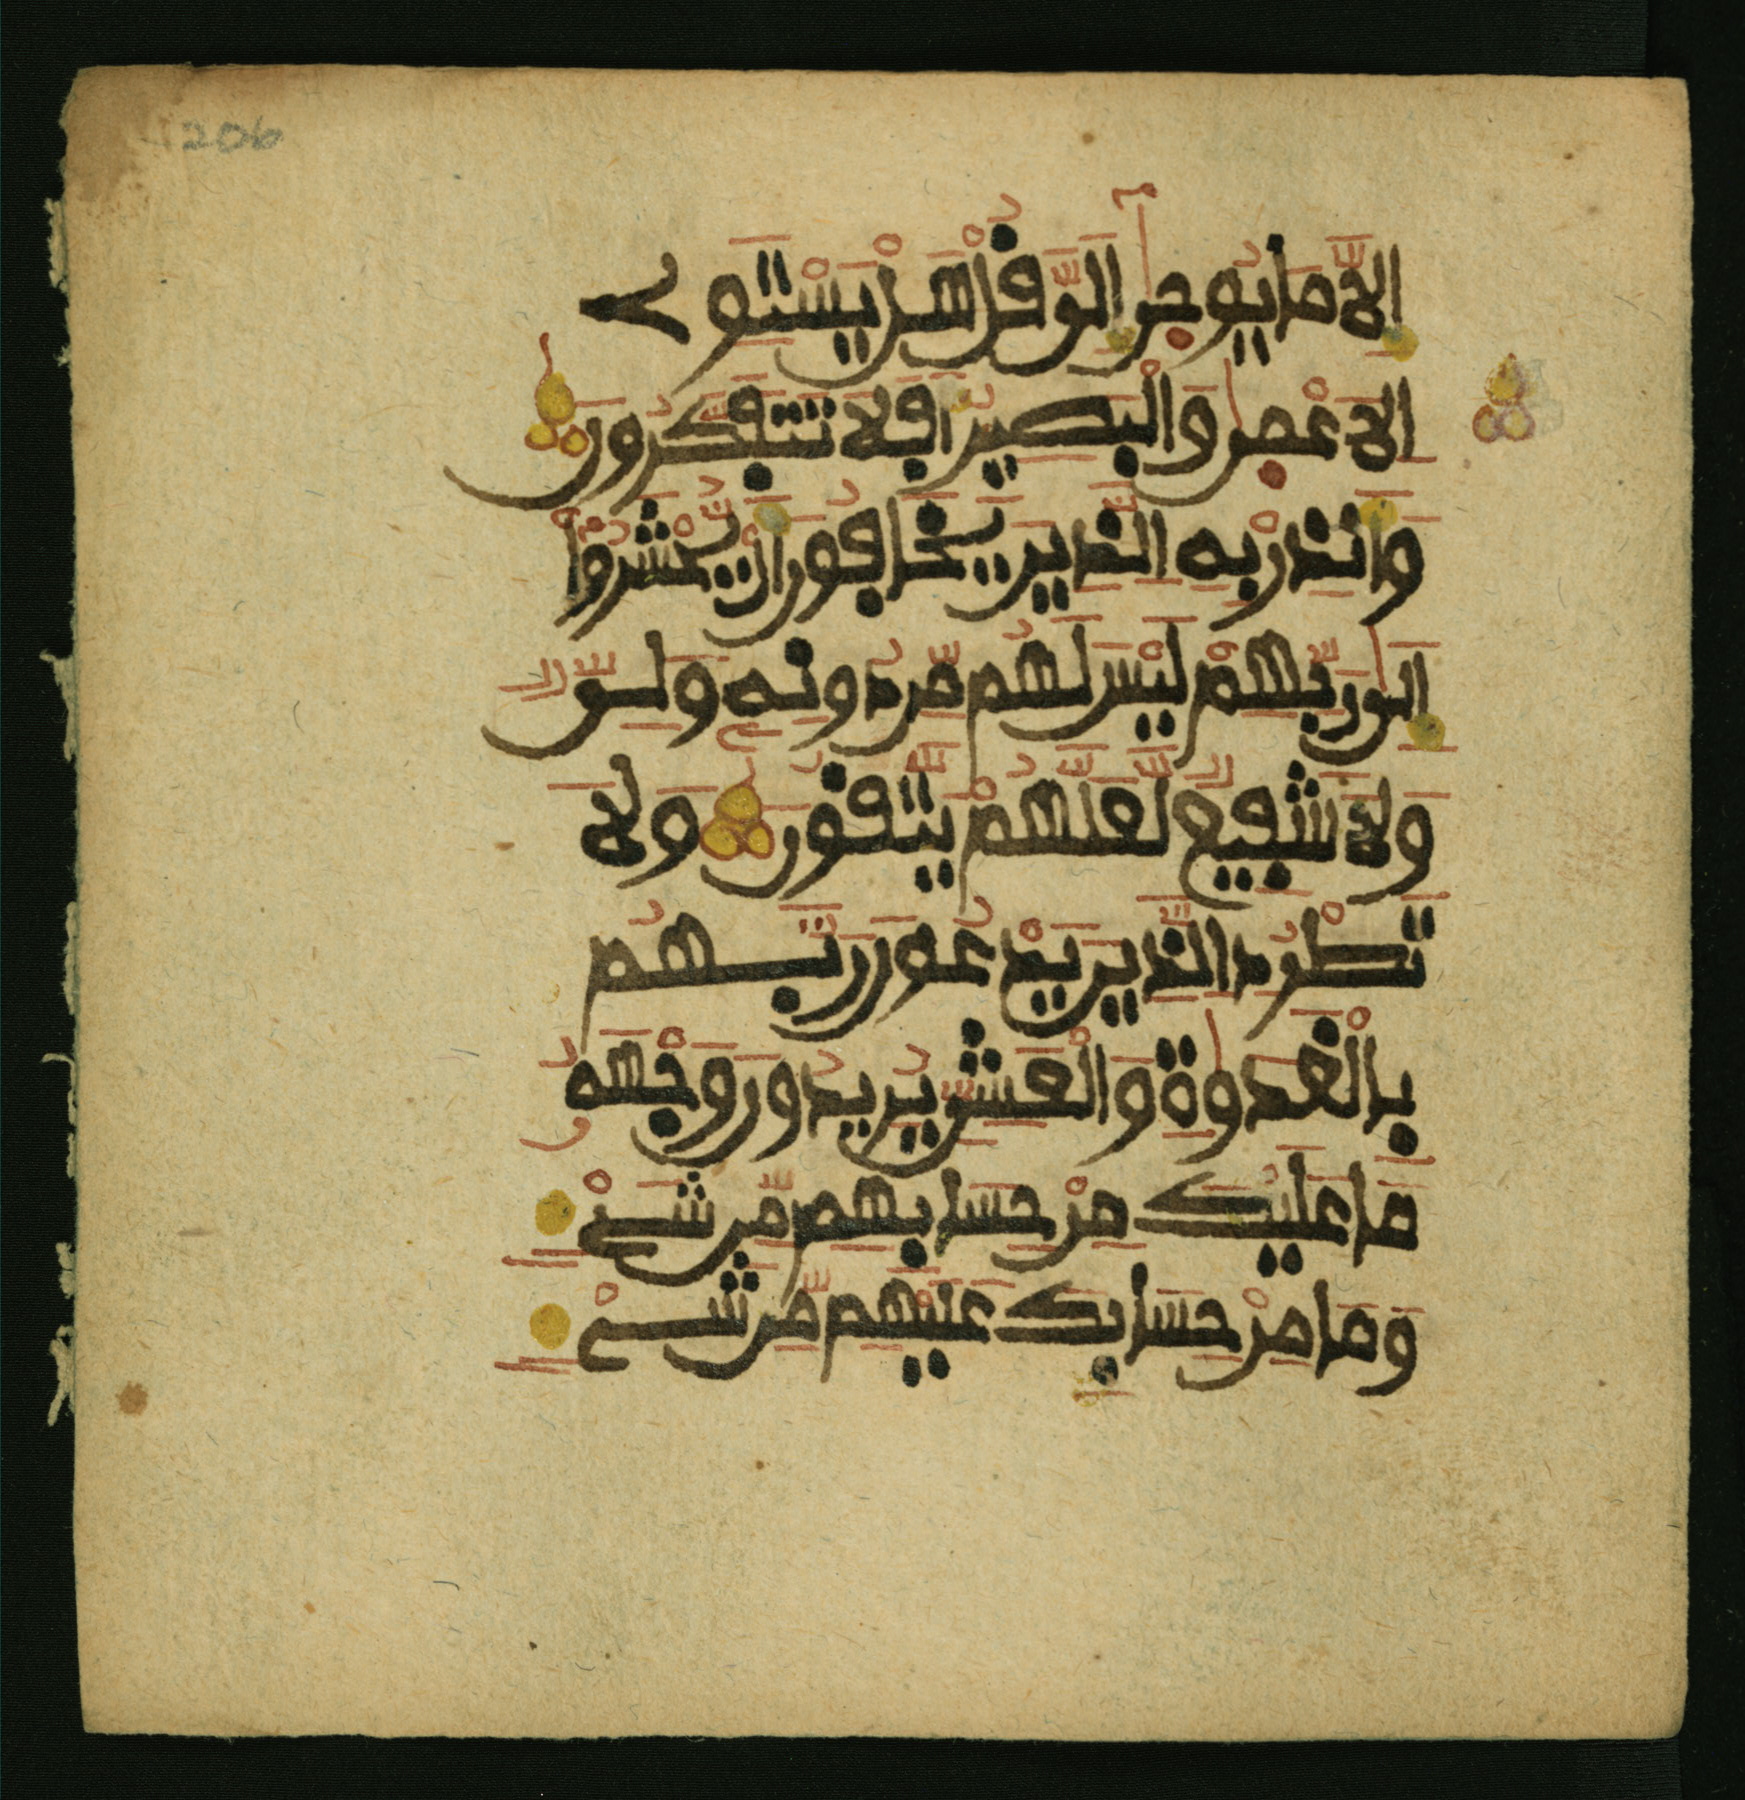 206
إلا ما يوحى إلى قل هل يستوى
الاعمى والبصير أفلا تتفكرون
وانذر به الذين يخافون أن يحشروا
إلى ربهم ليس لهم من دونه ولى
ولا شفيع لعلهم يتقون ولا
تطرد الذين يدعون ربهم
بالغدوة والعشى يريدون وجهه
ما عليك من حسابهم من شىء
وما من حسابك عليهم من شىء